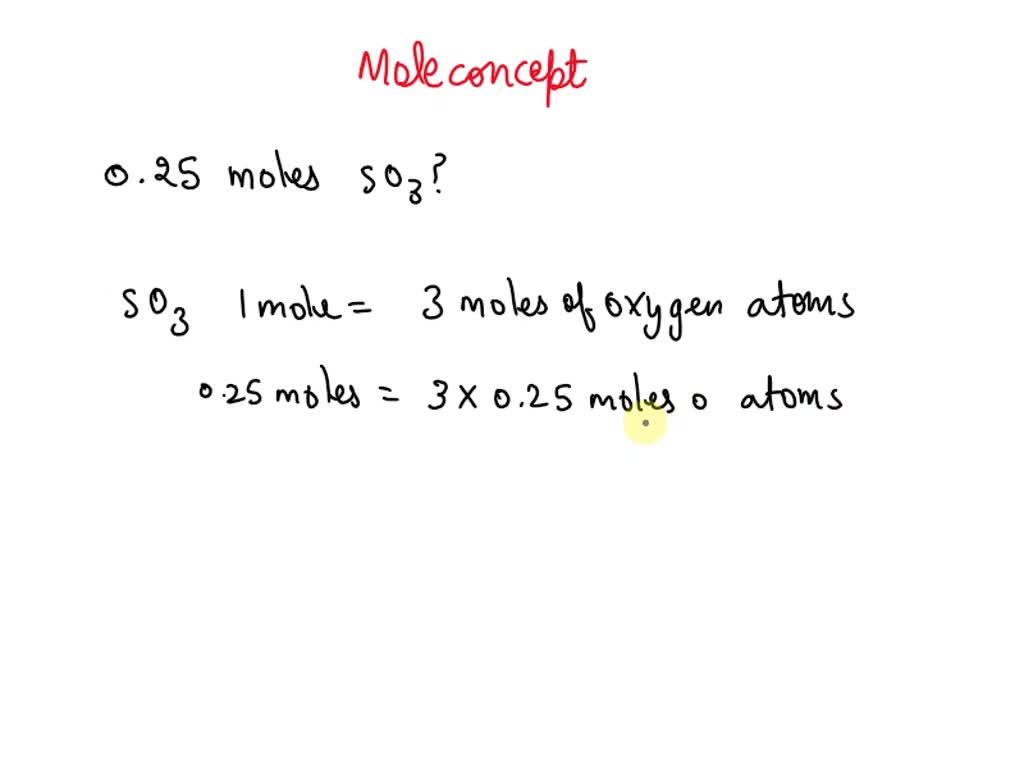 Mole concept
0.25 moles SO3?
SO3 1 mole = 3 moles of oxygen atoms
0.25 moles = 3 x 0.25 moles o atoms